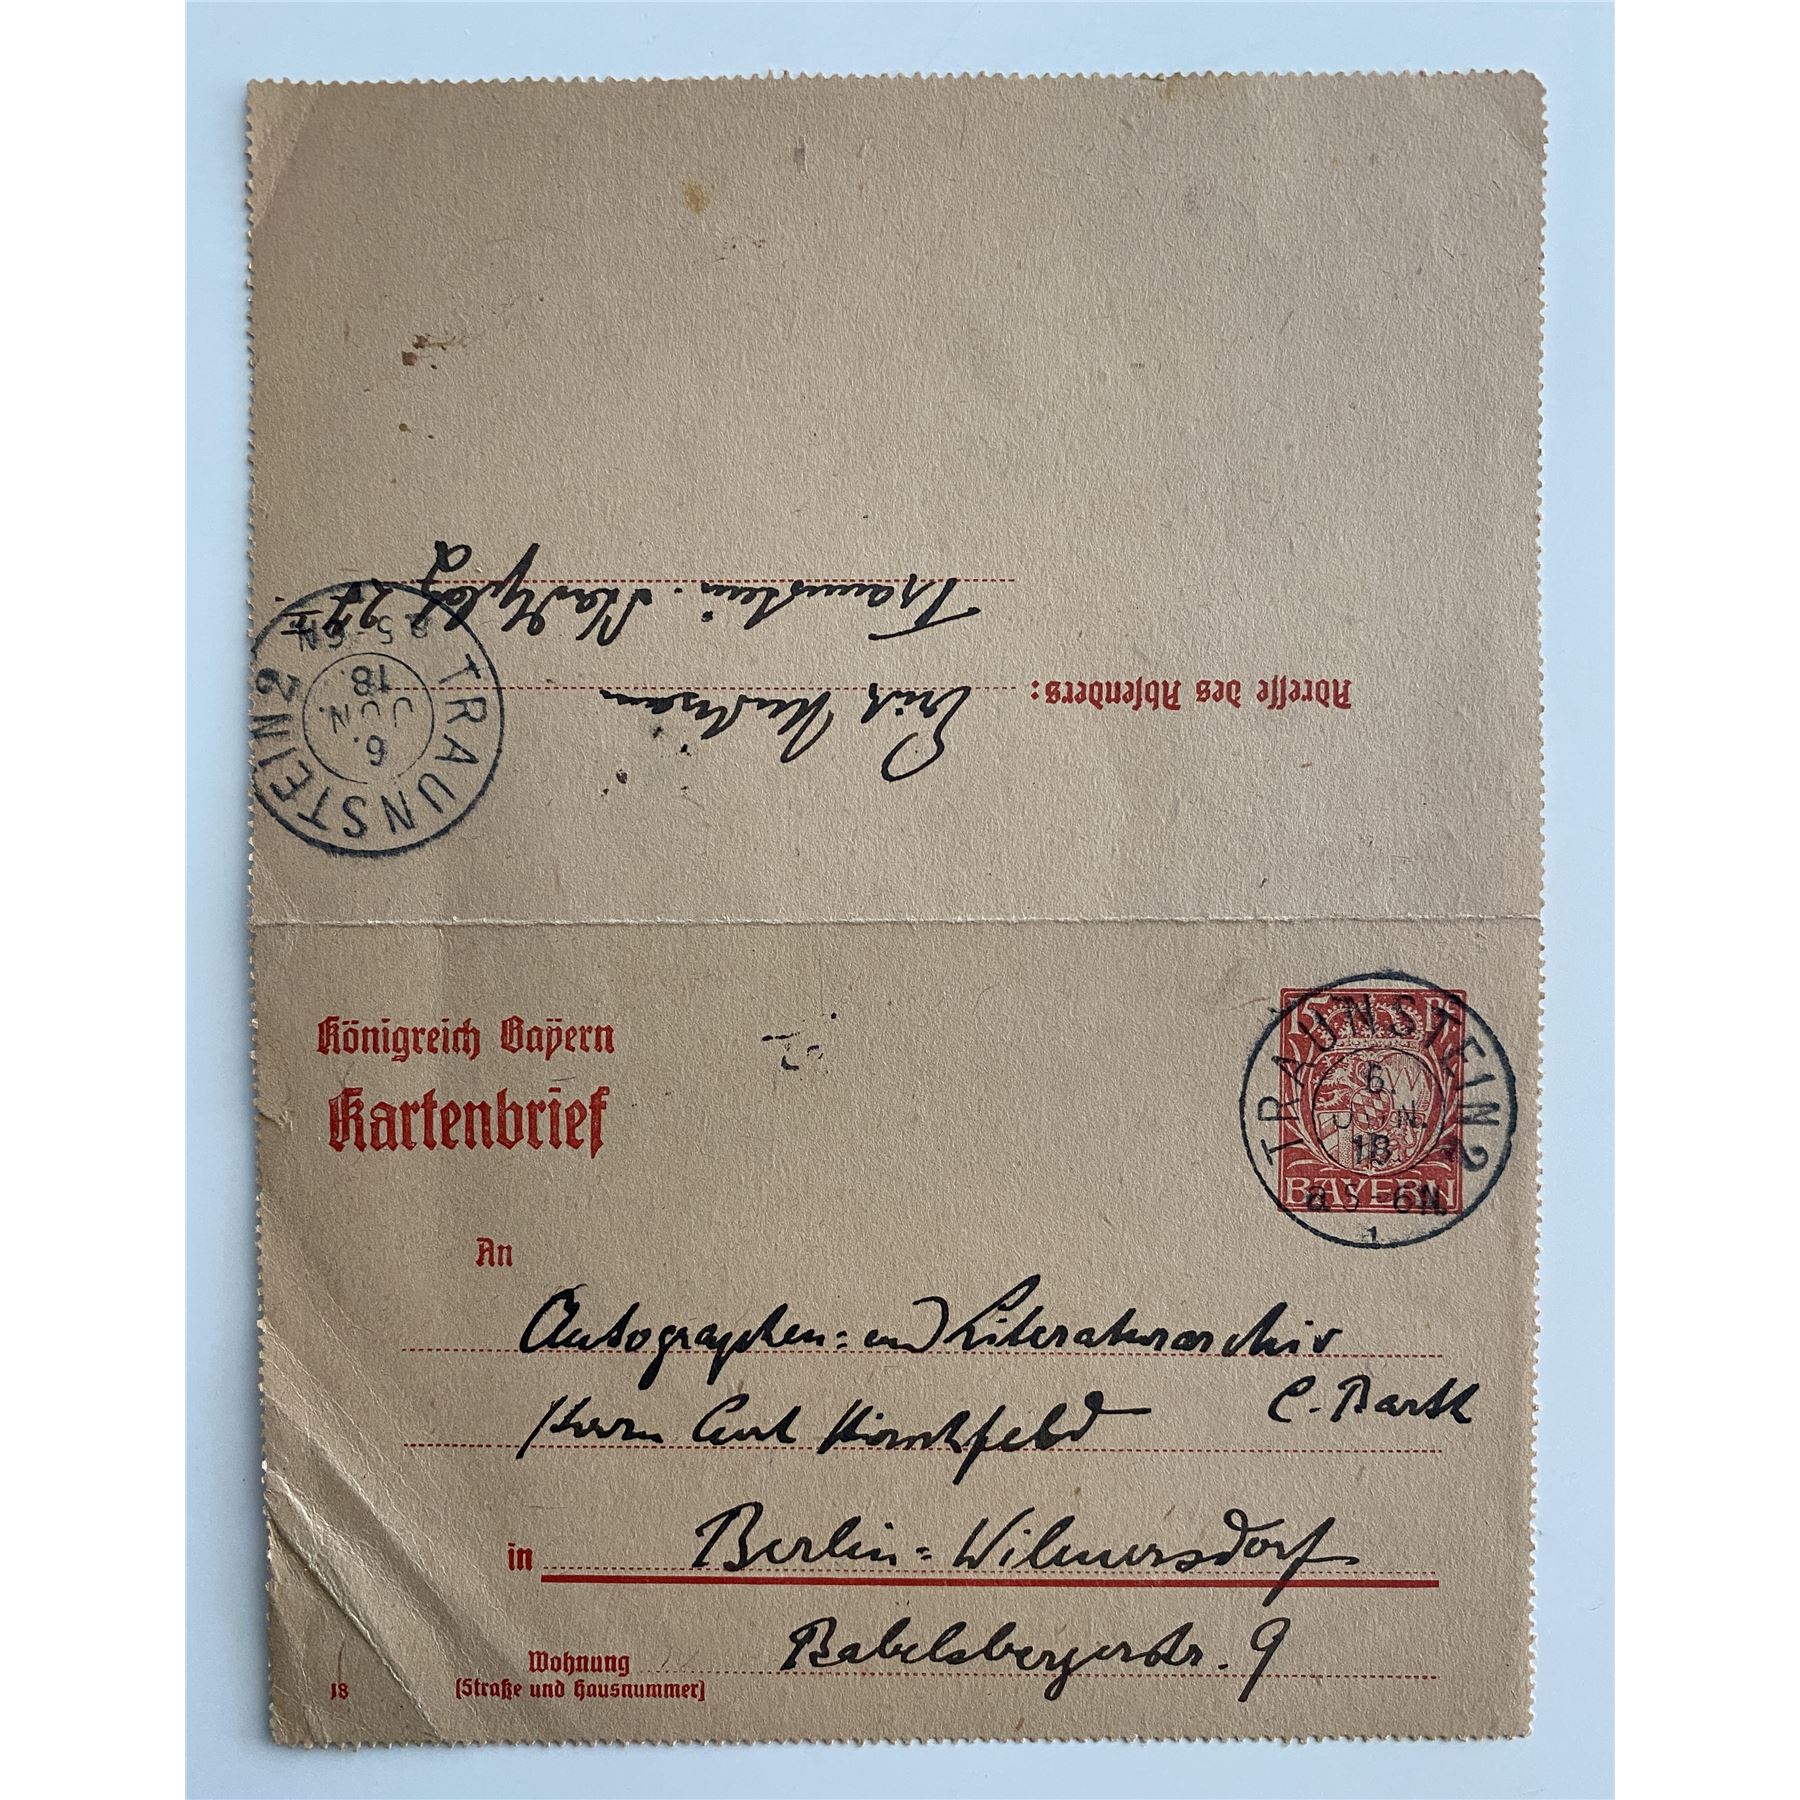 Adresse des Absenders: Erich Mühsam
Traunstein. Stadtplatz
TRAUNSTEIN 2
6.
JUN.
18.
a 5-6N
Königreich Bayern
Kartenbrief
15 Pf
BAYERN
TRAUNSTEIN 2
6.
JUN.
18
a 5-6N.
1
An
Autographen- und Literaturarchiv
C. Barth
Herrn Curt Hirschfeld
in Berlin-Wilmersdorf
Wohnung Babelsbergerstr. 9
(Straße und Hausnummer)
18